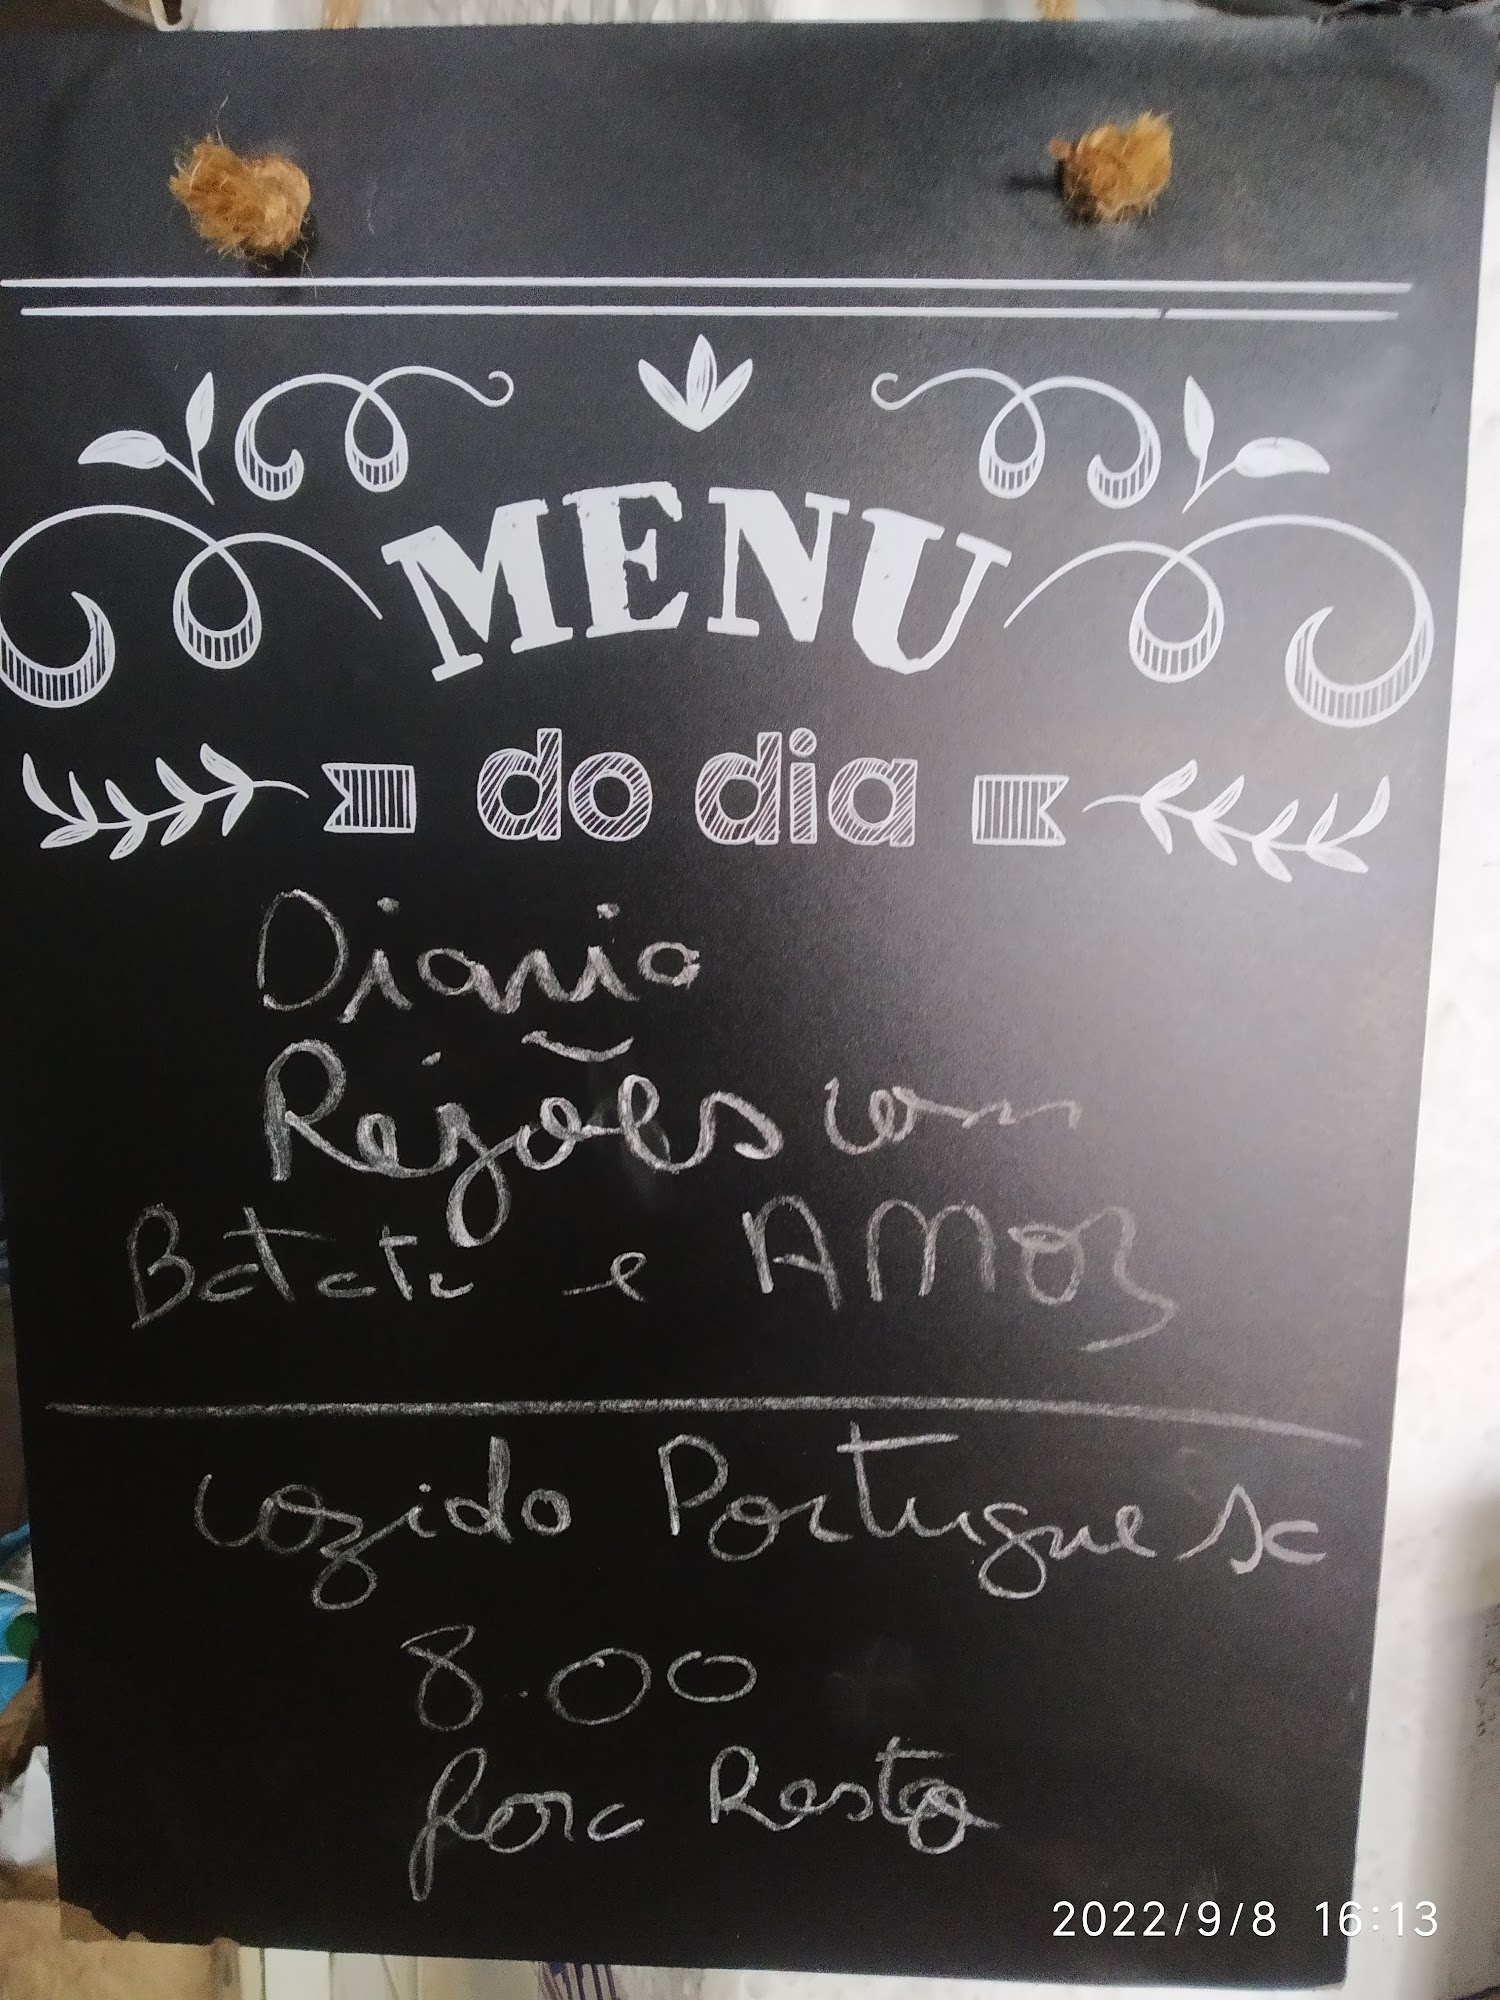 MENU
do dia
Diario
Rejões com
Batata e AMOZ
cozido Portuguesa
8.00
fora Resto
2022/9/8 16:13